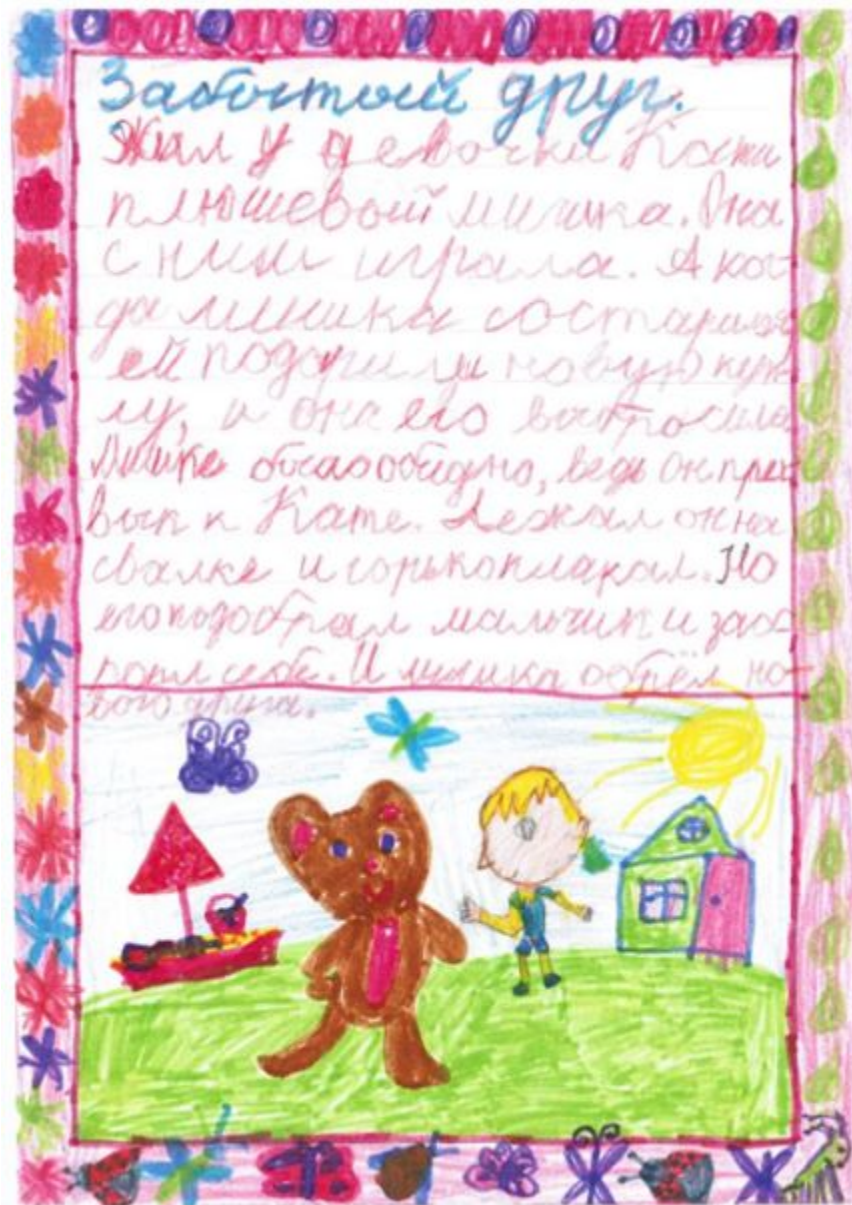 Забытый друг.
Жил у девочки Кати
плюшевый мишка. Она
с ним играла. А ког-
да мишка состарился
ей подарили новую кук-
лу, и она его выбросила
Мишке было обидно, ведь он при
вык к Кате. Лежал он на
свалке и горько плакал. Но
его подобрал мальчик и заб
рал себе. И мишка обрёл но-
вого друга.